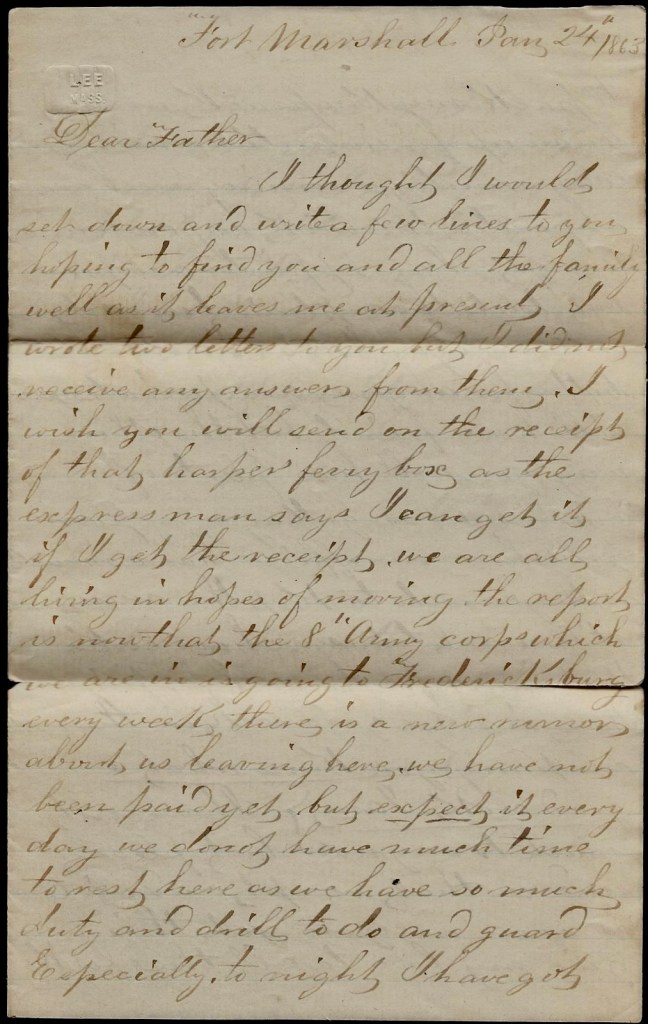 Fort Marshall Jan 24" 1863
LEE
MASS
Dear Father
I thought I would
set down and write a few lines to you
hoping to find you and all the family
well as it leaves me at present, I
wrote two letters to you but I did not
receive any answers from them. I
wish you will send on the receipt
of that harper ferry box as the
express man says I can get it
if I get the receipt. we are all
living in hopes of moving the report
is now that the 8" Army corps which
we are in is going to Fredericksburg
every week there is a new rumor
about us leaving here. we have not
been paid yet but expect it every
day we do not have much time
to rest here as we have so much
duty and drill to do and guard
Especially. to night I have got